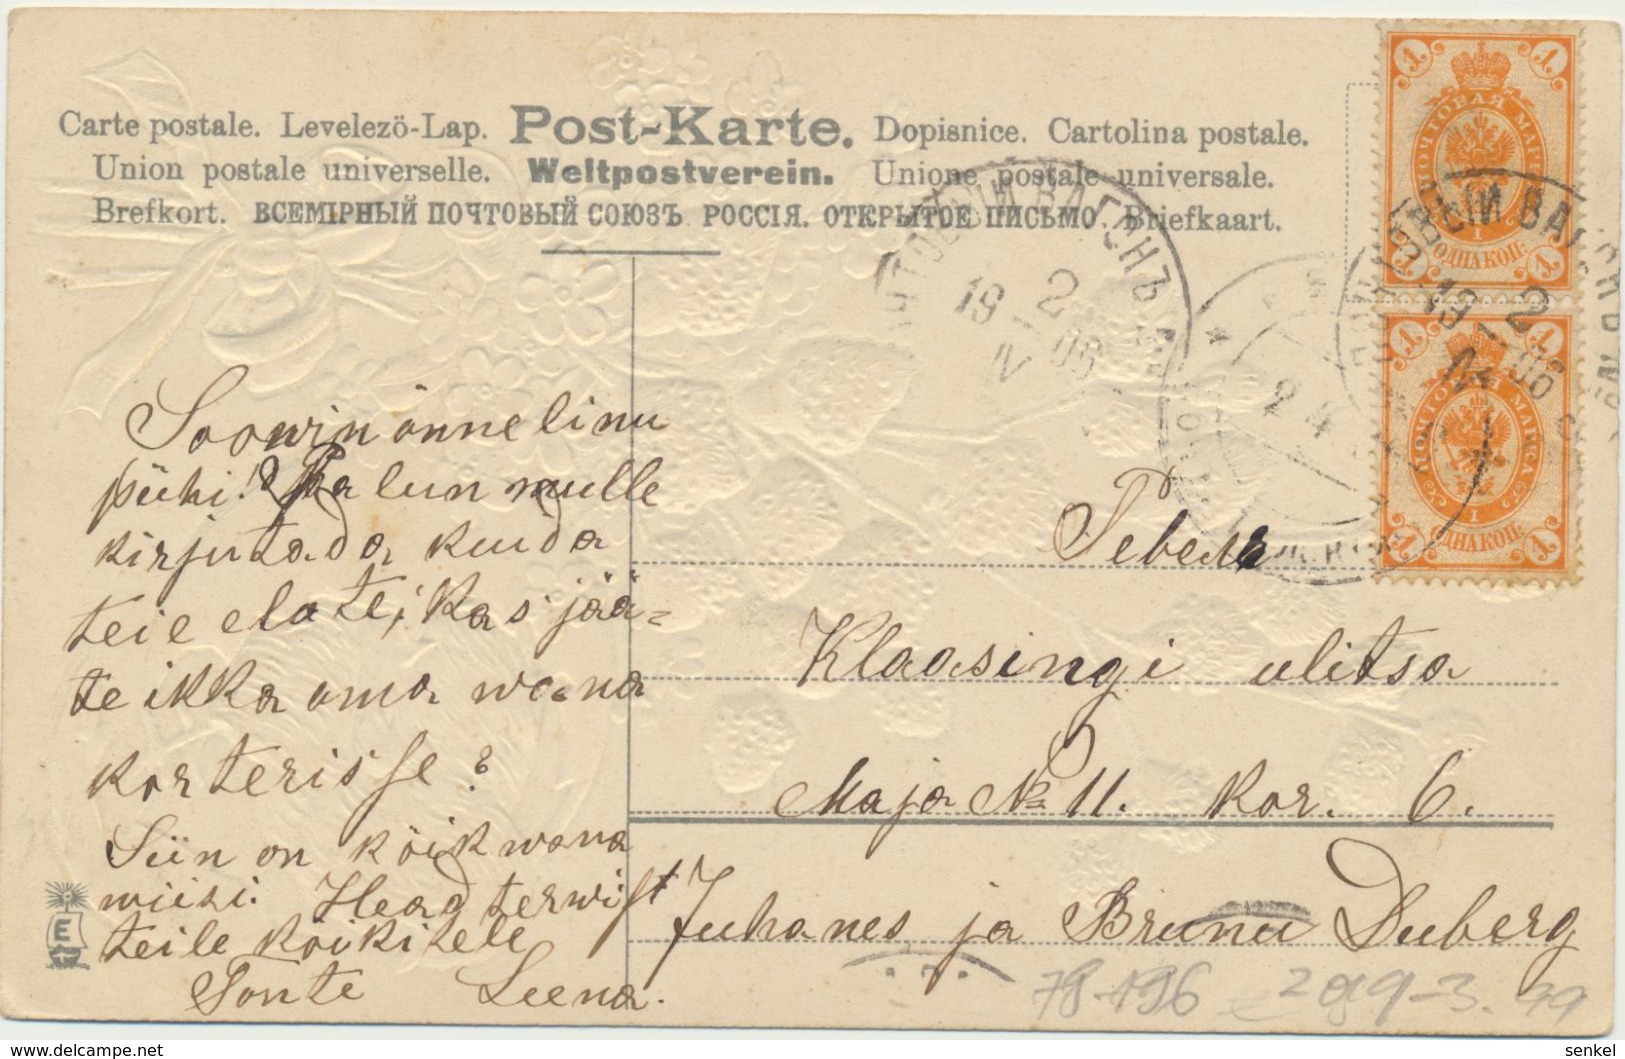 Carte postale. Levelezö-Lap. Post-Karte. Dopisnice. Cartolina postale.
Union postale universelle. Weltpostverein. Unione postale universale.
Brefkort. ВСЕМІРНЫЙ ПОЧТОВЫЙ СОЮЗЪ. РОССІЯ. ОТКРЫТОЕ ПИСЬМО. Briefkaart.
1 1
ПОЧТОВАЯ МАРКА
1
ОДНА КОП.
1 1
1 1
ПОЧТОВАЯ МАРКА
1
ОДНА КОП.
1 1
ПОЧТОВЫЙ ВАГОНЪ
19 2
IV 06
ВЫЙ ВАГОНЪ
19 2
IV 06
2 4
Soowin önne linu
pühi! Palun mulle
kirjutada kuida
teie elate, kas jää=
te ikka oma wana
korterisse?
Siin on kõik wana
wiisi. Head terwist
teile kõikitele
Tonte Leena.
Ревель
Klaasingi ulitsa
Maja № 11. kor. 6.
Juhanes ja Brunu Duberg
E
78-196 2099-3. 79
senkel - delcampe.net